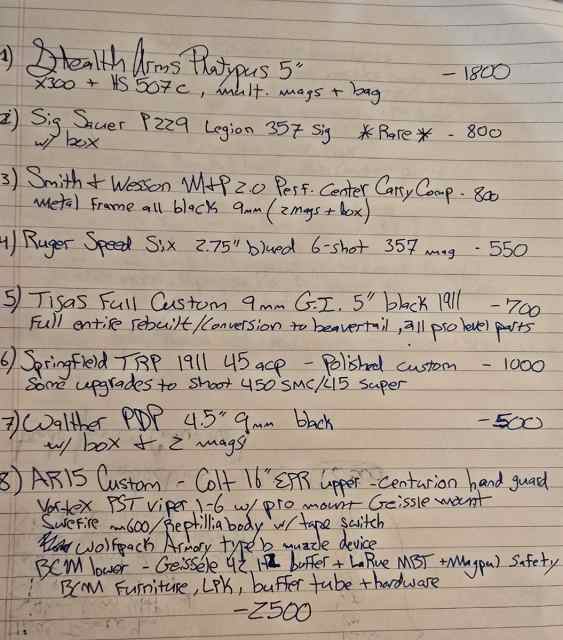 1) Stealth Arms Platypus 5" - 1800
X300 + HS 507c, mult. mags + bag
2) Sig Sauer P229 Legion 357 Sig *Rare* - 800
w/ box
3) Smith + Wesson M+P 2.0 Perf. Center Carry Comp. - 800
Metal Frame all black 9mm (2mags + box)
4) Ruger Speed Six 2.75" blued 6-shot 357 mag - 550
5) Tisas Full Custom 9mm G.I. 5" black 1911 - 700
Full entire rebuilt/conversion to beavertail, all pro level parts
6) Springfield TRP 1911 45 acp - Polished custom - 1000
Some upgrades to shoot 450 SMC/45 super
7) Walther PDP 4.5" 9mm black - 500
w/ box + 2 mags
8) AR15 Custom - Colt 16" EPR upper - Centurion hand guard
Vortex PST viper 1-6 w/ pro mount Geissle mount
Surefire m600/Reptillia body w/ tape switch
Wolfpack Armory type b muzzle device
BCM lower - Geissele 42 H2 buffer + LaRue MBT + Magpul Safety
BCM Furniture, LPK, buffer tube + hardware
- 2500